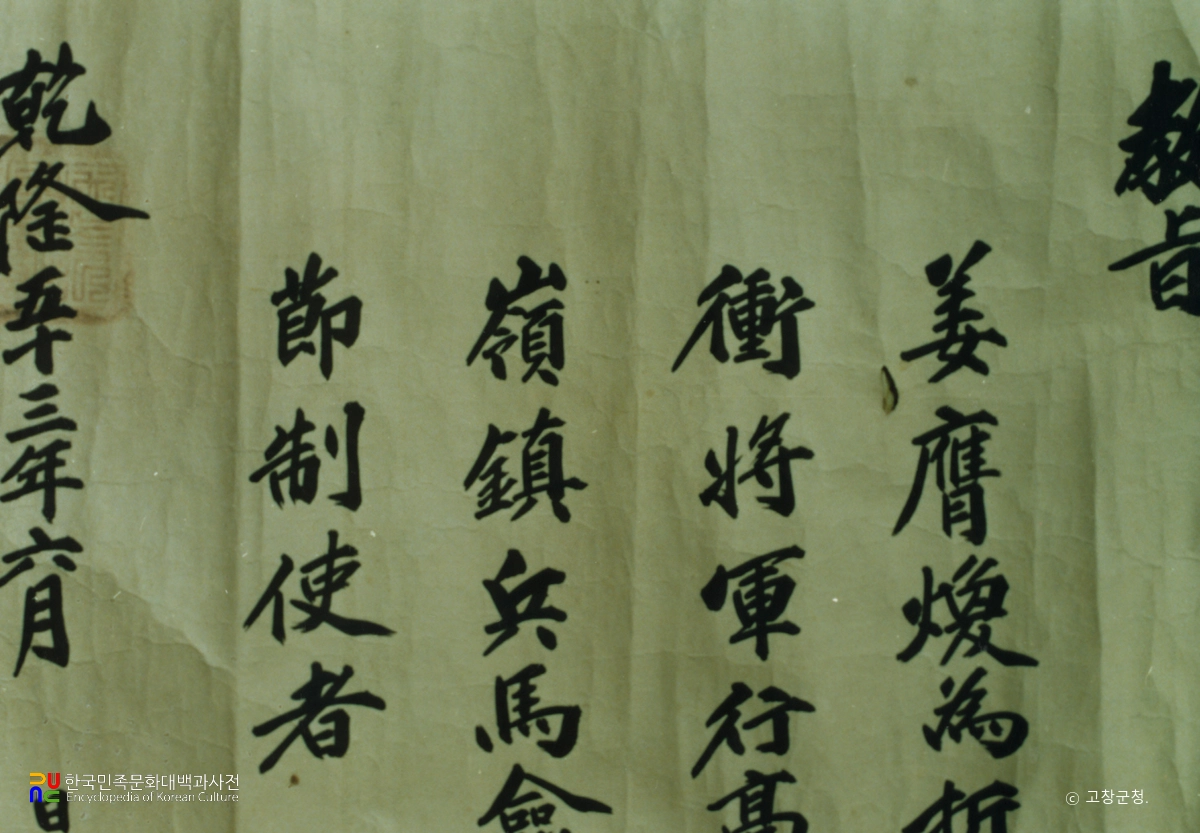 教旨
姜膺煥為折
衝將軍行高
嶺鎮兵馬僉
節制使者
乾隆五十三年六月 日
한국민족문화대백과사전
Encyclopedia of Korean Culture
© 고창군청.